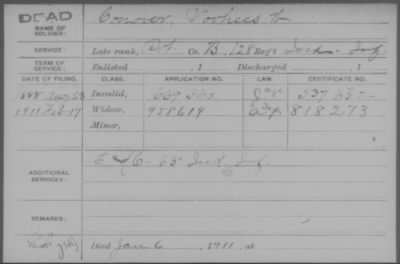 DEAD
NAME OF SOLDIER: Conover, Voorhees
SERVICE: Late rank, Co. B, 128 Reg't Ind. Inf.
TERM OF SERVICE: Enlisted , 1 Discharged , 1
DATE OF FILING. CLASS. APPLICATION NO. LAW. CERTIFICATE NO.
Invalid,
1911 Feb 17 Widow, 958619 818273
Minor,
ADDITIONAL SERVICES: 63 Ind. Inf.
REMARKS:
Died Jan 6, 1911, at